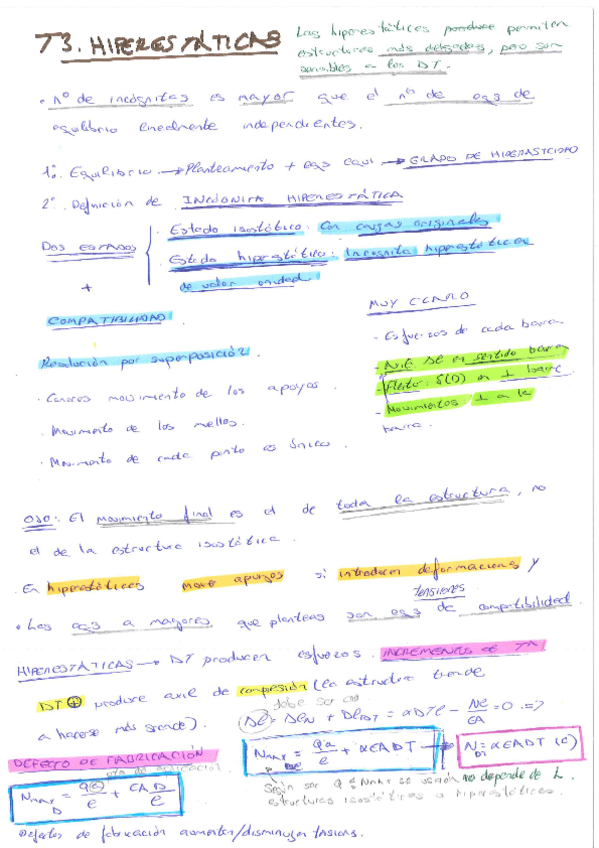 T3. HIPERESTÁTICAS
Las hiperestáticas permiten
estructuras más delgadas, pero son
sensibles a los DT.
• nº de incógnitas es mayor que el nº de eqs de
equilibrio linealmente independientes.
1º. Equilibrio → Planteamiento + eqs equi → GRADO DE HIPERASTICIDAD
2º. Definición de INCÓGNITA HIPERESTÁTICA
DOS ESTADOS
+
· Estado isostático: Con cargas originales
· Estado hiprestático: Incognita hiprestática
de valor unidad
COMPATIBILIDAD
Resolución por superposición.
· Conores movimiento de los apoyos.
· Movimiento de los muelles.
· Movimiento de cada punto es único.
MUY CLARO
- Esfuerzos de cada barra
- en sentido barra
- Flecto: δ(D) en ⊥ barra
- Movimientos: ⊥ a la
barra.
OJO: El movimiento final es el de toda la estructura, no
el de la estructura isostática.
· En hiperestáticos mover apoyos si introducen deformaciones y
tensiones.
• Las eqs a mayores que planteas son eqs de compatibilidad
HIPERESTÁTICAS → DT producen esfuerzos. INCREMENTOS DE Tª
DT ⊕ produce axil de compresión (la estructura tiende
a hacerse más grande).
debe ser 0
Dl = Dl_N + Dl_DT = αDTl - Nl/EA = 0 =>
DEFECTO DE FABRICACIÓN
N_max = Qa/e + αEADT → N_DT = αEADT (C)
N_max D = Qa/e + EAD/e
Según ser Q no depende de L.
estructuras isostáticas a hiperestáticas.
Defectos de fabricación aumentan/disminuyen tensions.